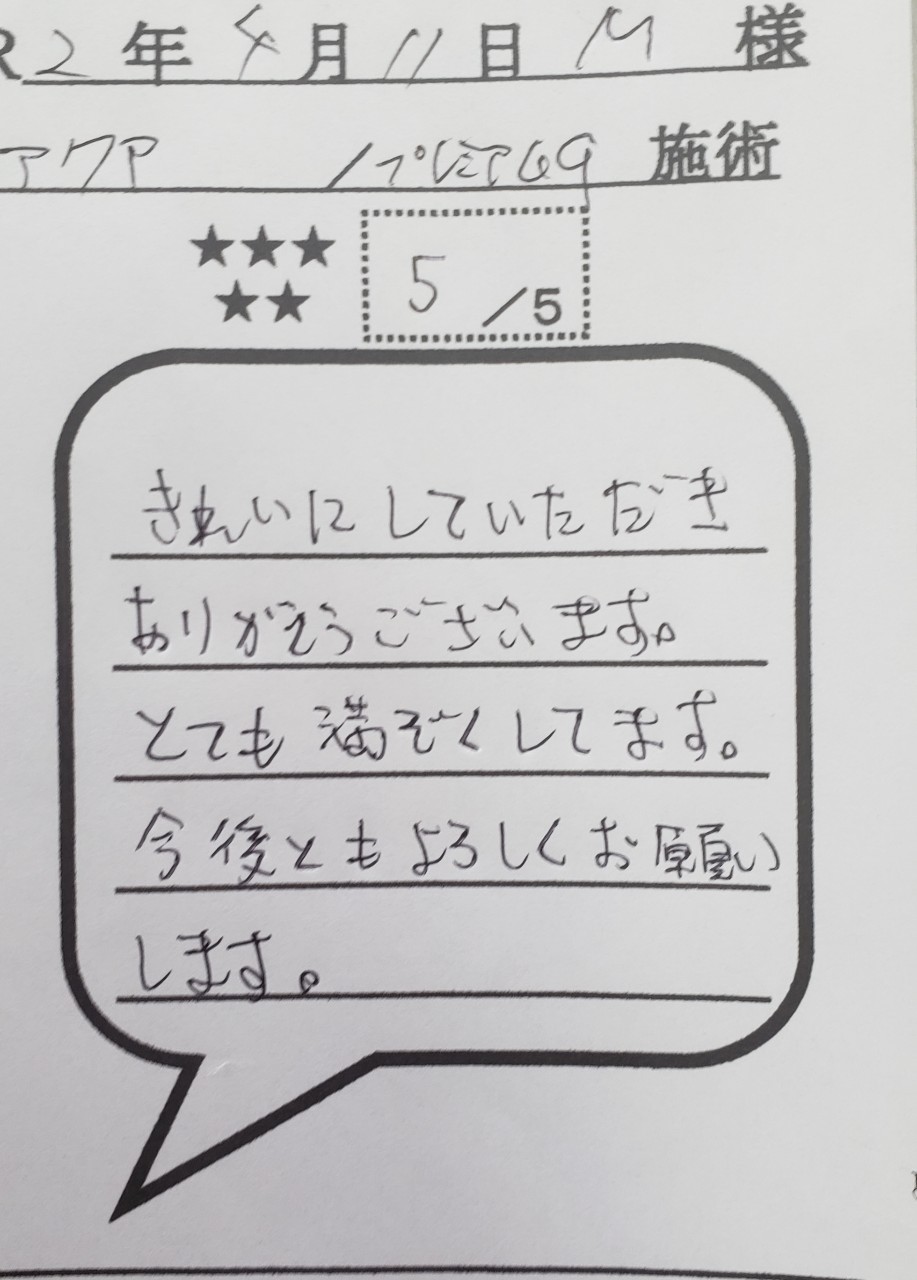 R2年4月11日 M 様
アクア /プレミアムG 施術
★★★
★★
5/5
きれいにしていただき
ありがとうございます。
とても満ぞくしてます。
今後ともよろしくお願い
します。